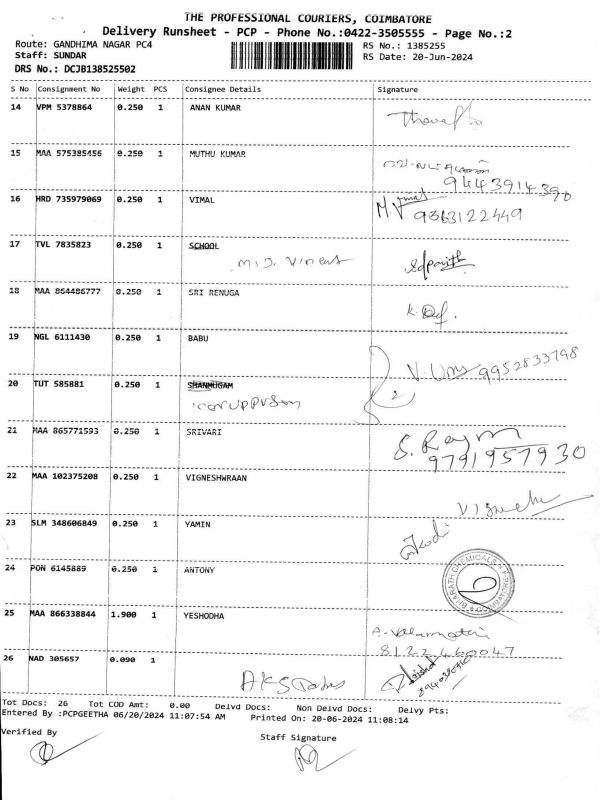 THE PROFESSIONAL COURIERS, COIMBATORE
Delivery Runsheet - PCP - Phone No.:0422-3505555 - Page No.:2
Route: GANDHIMA NAGAR PC4 RS No.: 1385255
Staff: SUNDAR RS Date: 20-Jun-2024
DRS No.: DCJB138525502
S No Consignment No Weight PCS Consignee Details Signature
14 VPM 5378864 0.250 1 ANAN KUMAR
15 MAA 575385456 0.250 1 MUTHU KUMAR
9443914390
16 HRD 735979069 0.250 1 VIMAL M. Vimal
9363122449
17 TVL 7835823 0.250 1 SCHOOL
18 MAA 864486777 0.250 1 SRI RENUGA
19 NGL 6111430 0.250 1 BABU
V. Uma 9952833798
20 TUT 585881 0.250 1 SHANMUGAM
21 MAA 865771593 0.250 1 SRIVARI
9791957930
22 MAA 102375208 0.250 1 VIGNESHWRAAN
23 SLM 348606849 0.250 1 YAMIN
24 PON 6145889 0.250 1 ANTONY
25 MAA 866338844 1.900 1 YESHODHA
8122460047
26 NAD 305657 0.090 1
Tot Docs: 26 Tot COD Amt: 0.00 Delvd Docs: Non Delvd Docs: Delvy Pts:
Entered By :PCPGEETHA 06/20/2024 11:07:54 AM Printed On: 20-06-2024 11:08:14
Verified By Staff Signature